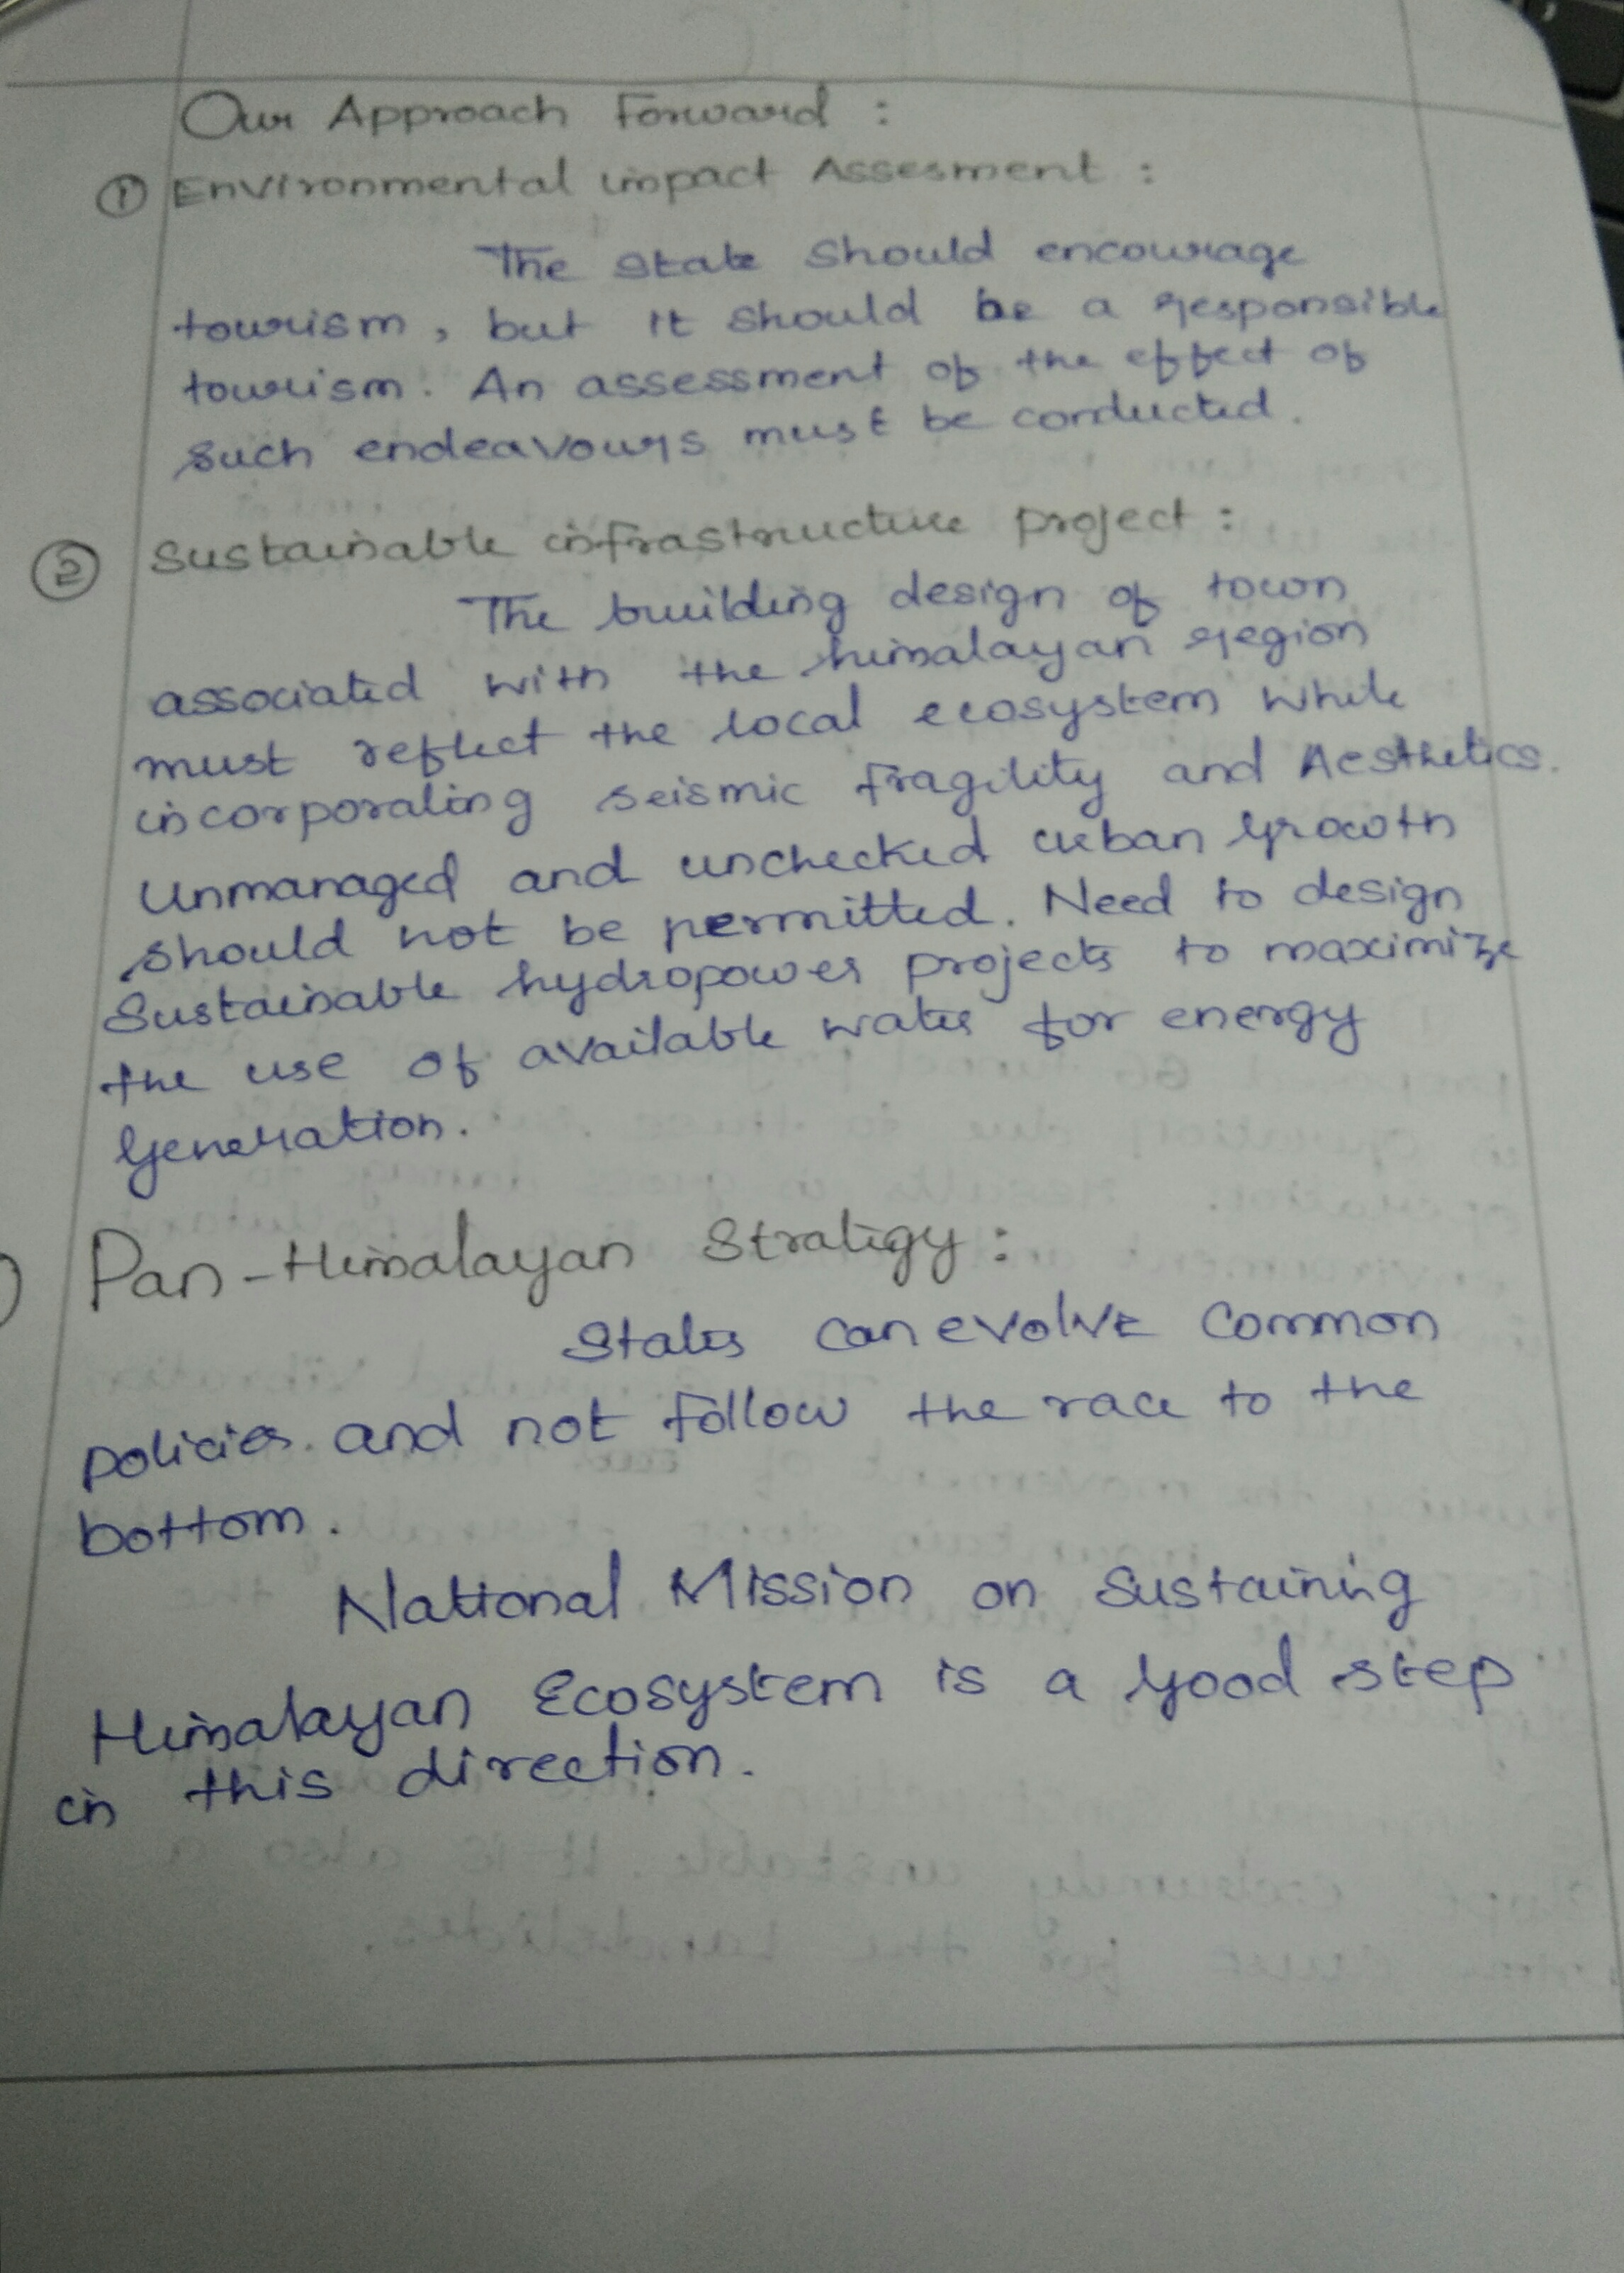 Our Approach Forward :
① Environmental impact Assesment :
The state should encourage
tourism, but it should be a responsible
tourism. An assessment of the effect of
such endeavours must be conducted.
② Sustainable infrastructure project :
The building design of town
associated with the himalayan region
must reflect the local ecosystem while
incorporating seismic fragility and Aesthetics.
Unmanaged and unchecked urban growth
should not be permitted. Need to design
Sustainable hydropower projects to maximize
the use of available water for energy
generation.
Pan-Himalayan Strategy :
States can evolve common
policies and not follow the race to the
bottom.
National Mission on Sustaining
Himalayan Ecosystem is a good step
in this direction.